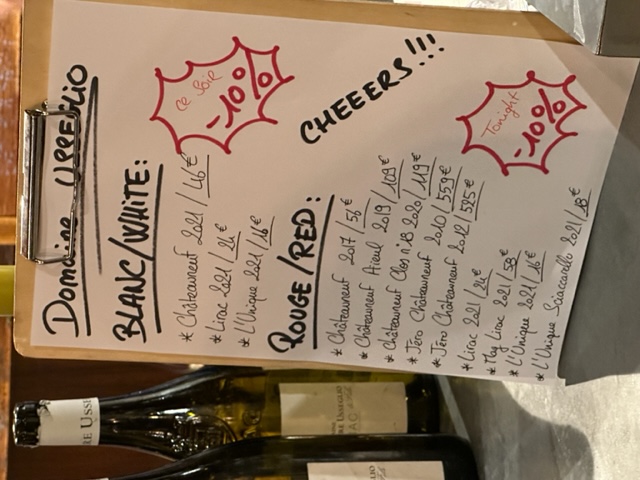 Domaine USSEGLIO
ce Soir
-10%
CHEEERS!!!
BLANC/WHITE:
* Châteauneuf 2021 / 46€
* Lirac 2021 / 24€
* L'Unique 2021 / 16€
Tonight
-10%
ROUGE/RED:
* Châteauneuf 2017 / 56€
* Châteauneuf Aïeul 2019 / 109€
* Châteauneuf Clos n°18 2020 / 119€
* Jéro Châteauneuf 2010 / 559€
* Jéro Châteauneuf 2012 / 525€
* Lirac 2021 / 24€
* Mag Lirac 2021 / 58€
* L'Unique 2021 / 16€
* L'Unique Sciaccarello 2021 / 28€
RE USSE
RE USSEGLIO